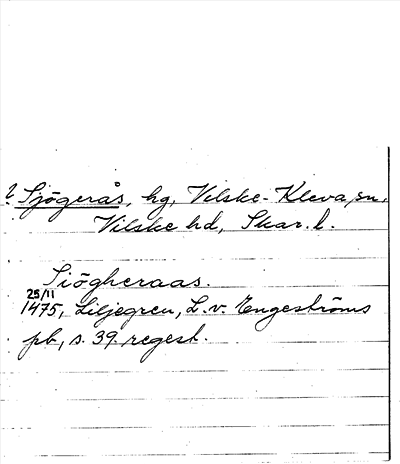 ? Sjögerås, hg, Vilske-Kleva sn,
Vilske hd, Skar. l.
Siögheraas.
25/11
1475, Liljegren, L. v. Engeströms
pb, s. 39. regest.